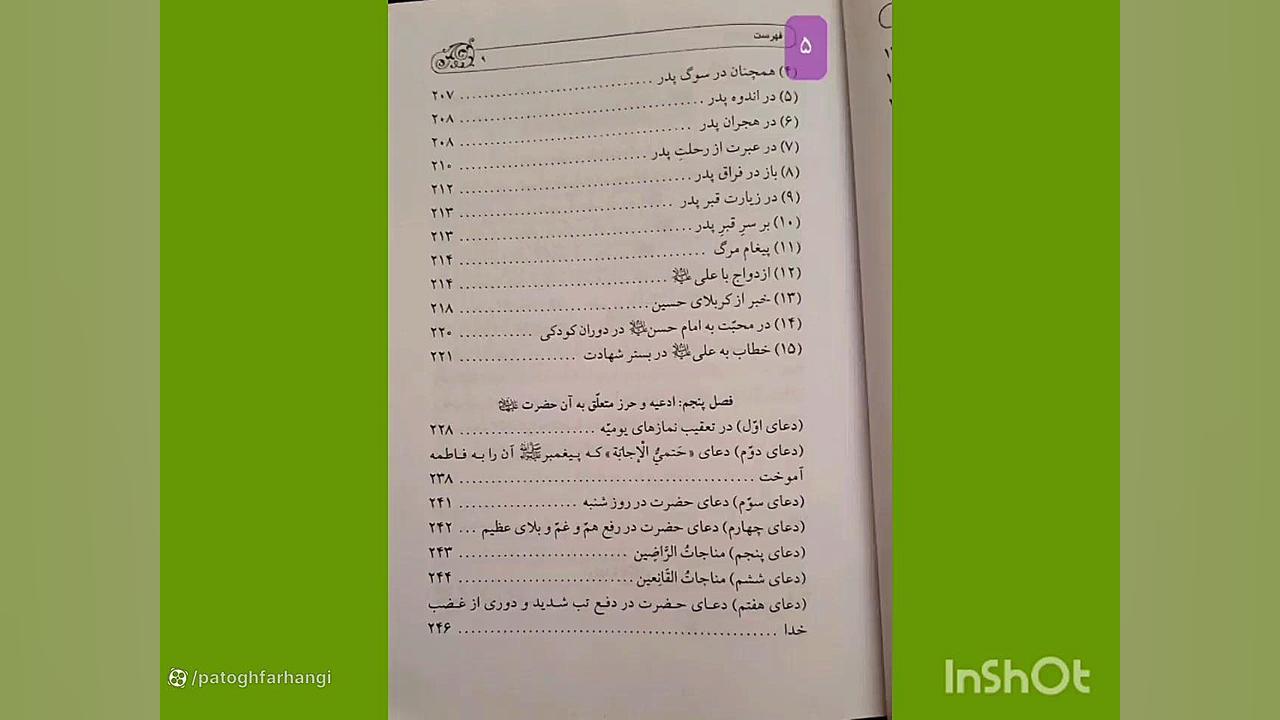 ۵
فهرست
۹
(۴) همچنان در سوگ پدر ........................ ۲۰۷
(۵) در اندوه پدر ........................ ۲۰۸
(۶) در هجران پدر ........................ ۲۰۸
(۷) در عبرت از رحلتِ پدر ........................ ۲۱۰
(۸) باز در فراق پدر ........................ ۲۱۲
(۹) در زیارت قبر پدر ........................ ۲۱۳
(۱۰) بر سرِ قبرِ پدر ........................ ۲۱۳
(۱۱) پیغام مرگ ........................ ۲۱۴
(۱۲) ازدواج با علی ........................ ۲۱۴
(۱۳) خبر از کربلای حسین ........................ ۲۱۸
(۱۴) در محبّت به امام حسن در دوران کودکی ............ ۲۲۰
(۱۵) خطاب به علی در بستر شهادت .................. ۲۲۱
فصل پنجم: ادعیه و حرز متعلّق به آن حضرت
(دعای اوّل) در تعقیب نمازهای یومیّه ..................... ۲۲۸
(دعای دوّم) دعای «حَتمیُّ الْإجابَة» که پیغمبر ﷺ آن را به فاطمه
آموخت ........................ ۲۳۸
(دعای سوّم) دعای حضرت در روز شنبه .................. ۲۴۱
(دعای چهارم) دعای حضرت در رفع همّ و غمّ و بلای عظیم ... ۲۴۲
(دعای پنجم) مناجاتُ الرَّاضِین ........................ ۲۴۳
(دعای ششم) مناجاتُ القَانِعین ........................ ۲۴۴
(دعای هفتم) دعای حضرت در دفع تب شدید و دوری از غضب
خدا ........................ ۲۴۶
/patoghfarhangi
InShOt